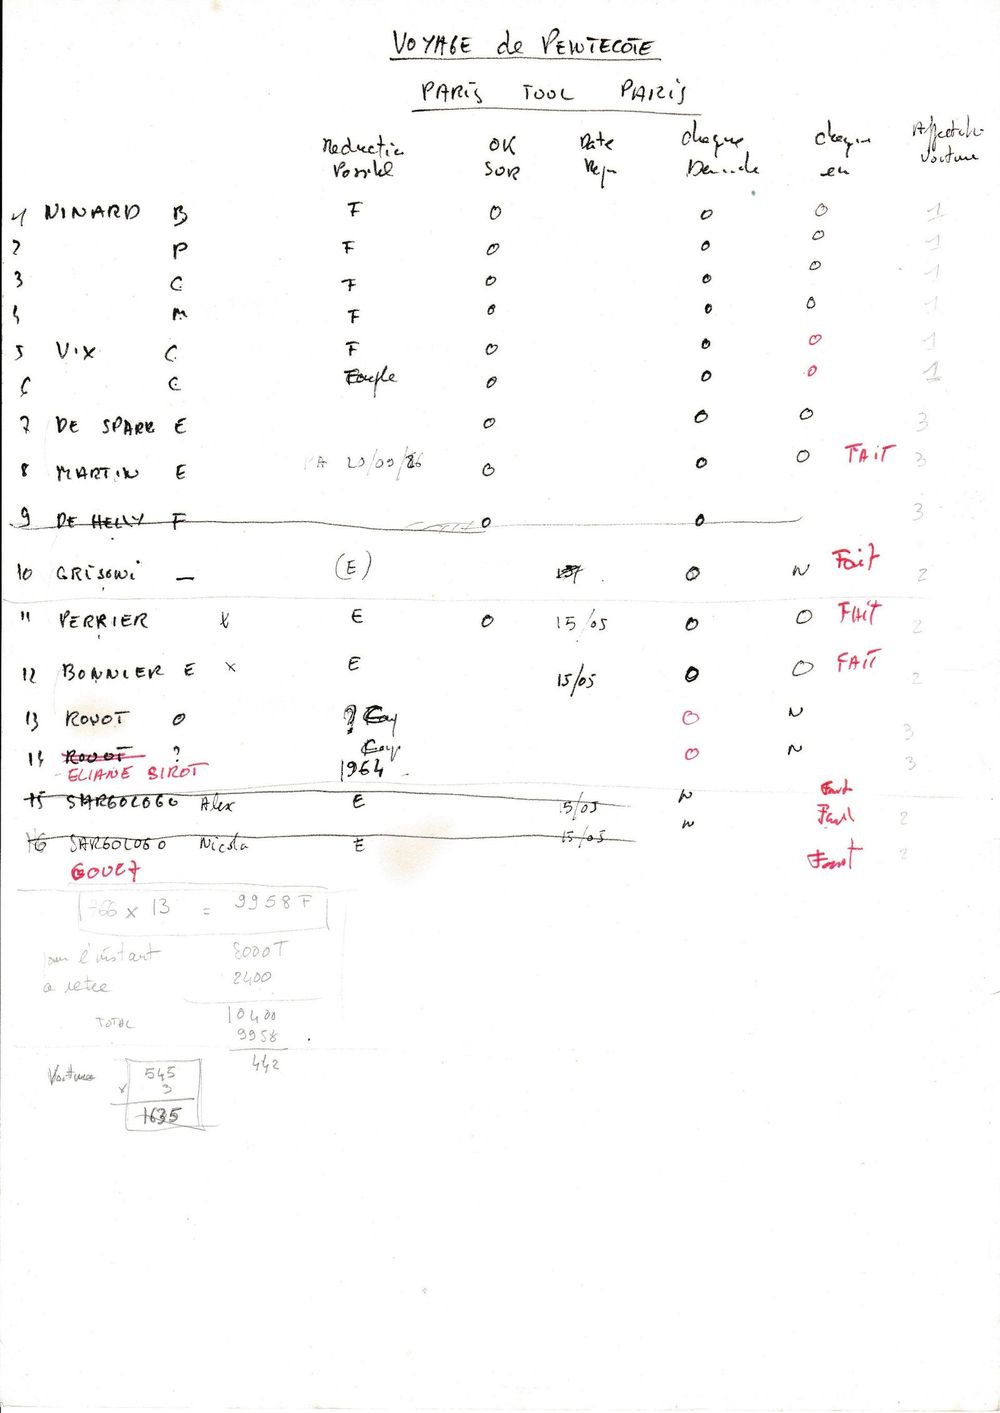 VOYAGE de PENTECOTE
PARIS TOOL PARIS
Reductio Possibl OK SUR Date Rep Cheque Demande Cheque en Affectati Voiture
1 NINARD B F O O O 1
2 P F O O O 1
3 C F O O O 1
4 M F O O O 1
5 VIX C F O O O 1
6 C Couple O O O 1
7 DE SPARR E O O O 3
8 MARTIN E 20/09/86 O O O FAIT 3
9 DE HELLY F O O 3
10 GRISONI — (E) O N Fait 2
11 PERRIER x E O 15/05 O O FAIT 2
12 BONNIER E x E 15/05 O O FAIT 2
13 ROUOT O ? O N 3
14 ROUOT ? O N 3
ELIANE SIROT 1964
15 SARGOLOGO Alex E 15/05 N 2
16 SARGOLOGO Nicola E 15/05 N 2
GOUEZ
766 x 13 = 9958 F
pour l'instant 8000 F
a 2400
TOTAL 10400
9958
442
Voiture 545
x 3
1635